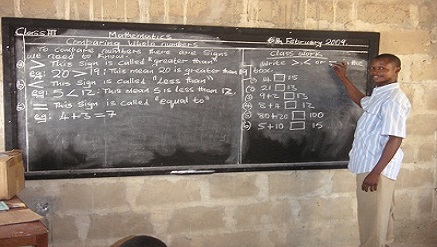 Class III Mathematics 6th February 2009
Comparing Whole numbers
To compare numbers there are signs
we need to know.
a) > This sign is called "greater than"
eg: 20 > 19: This mean 20 is greater than 19
b) < This sign is called "Less than"
eg: 5 < 12: This mean 5 is less than 12.
c) = This sign is called "equal to"
eg: 4 + 3 = 7
Class Work
Write >, < or = in the
box
14 □ 15
21 □ 13
9 + 2 □ 13
8 + 4 □ 12
80 + 20 □ 100
5 + 10 □ 15